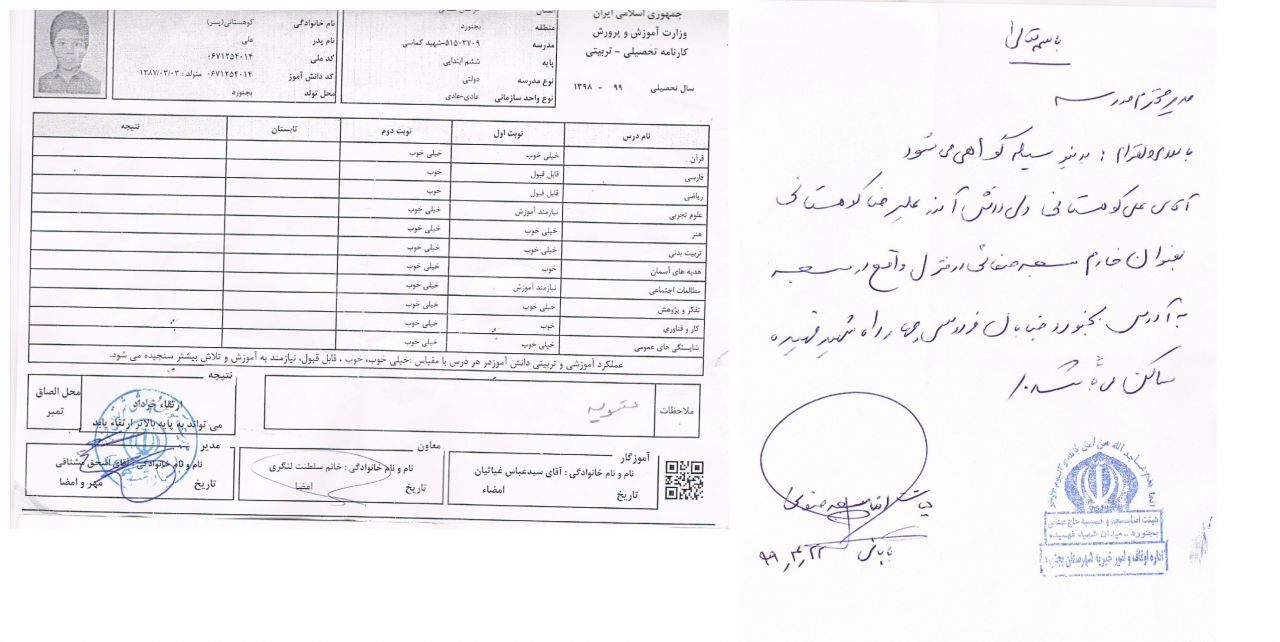 جمهوری اسلامی ایران
وزارت آموزش و پرورش
کارنامه تحصیلی - تربیتی
سال تحصیلی ۹۹ - ۱۳۹۸
منطقه بجنورد
مدرسه ۵۱۵۰۳۷۰۹-شهید کماسی
پایه ششم ابتدایی
نوع مدرسه دولتی
نوع واحد سازمانی عادی-عادی
نام خانوادگی کوهستانی(پسر)
نام پدر علی
کد ملی ۰۶۷۱۲۵۴۰۱۴
کد دانش آموز ۰۶۷۱۲۵۴۰۱۴ متولد : ۱۳۸۷/۰۳/۰۳
محل تولد بجنورد
نام درس نوبت اول نوبت دوم تابستان نتیجه
قرآن خیلی خوب خیلی خوب
فارسی قابل قبول خوب
ریاضی قابل قبول خوب
علوم تجربی نیازمند آموزش خیلی خوب
هنر خیلی خوب خیلی خوب
تربیت بدنی خیلی خوب خیلی خوب
هدیه های آسمان خوب خیلی خوب
مطالعات اجتماعی نیازمند آموزش خیلی خوب
تفکر و پژوهش خیلی خوب خیلی خوب
کار و فناوری خوب خیلی خوب
شایستگی های عمومی خیلی خوب خیلی خوب
عملکرد آموزشی و تربیتی دانش آموزدر هر درس با مقیاس :خیلی خوب، خوب ، قابل قبول، نیازمند به آموزش و تلاش بیشتر سنجیده می شود.
ملاحظات
نتیجه
ارتقاء خرداد
می تواند به پایه بالاتر ارتقاء یابد
محل الصاق
تمبر
آموزگار
نام و نام خانوادگی : آقای سیدعباس غیاثیان
تاریخ امضاء
معاون
نام و نام خانوادگی : خانم سلطنت لنگری
تاریخ امضا
مدیر
نام و نام خانوادگی : آقای اسحق مشتاقی
تاریخ مهر و امضا
باسمه تعالی
مدیر محترم مدرسه
با سلام و احترام : بدینوسیله گواهی می شود
آقای علی کوهستانی ولی دانش آموز علیرضا کوهستانی
بعنوان خادم مسجد صفائی در منزل واقع در مسجد
به آدرس بجنورد خیابان فردوسی چهارراه شهید فهمیده
ساکن می باشد.
هیئت امناء مسجد صفائی
۹۹٫۴٫۲۲
هیئت امناء مسجد و حسینیه حاج صفائی
بجنورد - میدان شهید فهمیده
اداره اوقاف و امور خیریه شهرستان بجنورد